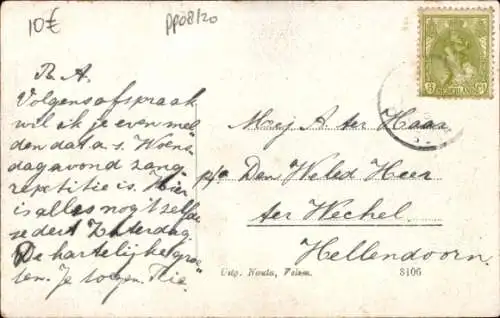 10€
pp08/20
B. A.
Volgens afspraak
wil ik je even mel
den dat a.s. Woens
dagavond zang
repetitie is. Hier
is alles nog 't zelfde
sedert Zaterdag.
De hartelijke groe
ten. Je toegen.
3 Ct
NEDERLAND
Mej A ter Haar
p/a Den Weled Heer
ter Wechel
Hellendoorn.
Uitg. Nauta, Velsen. 8106